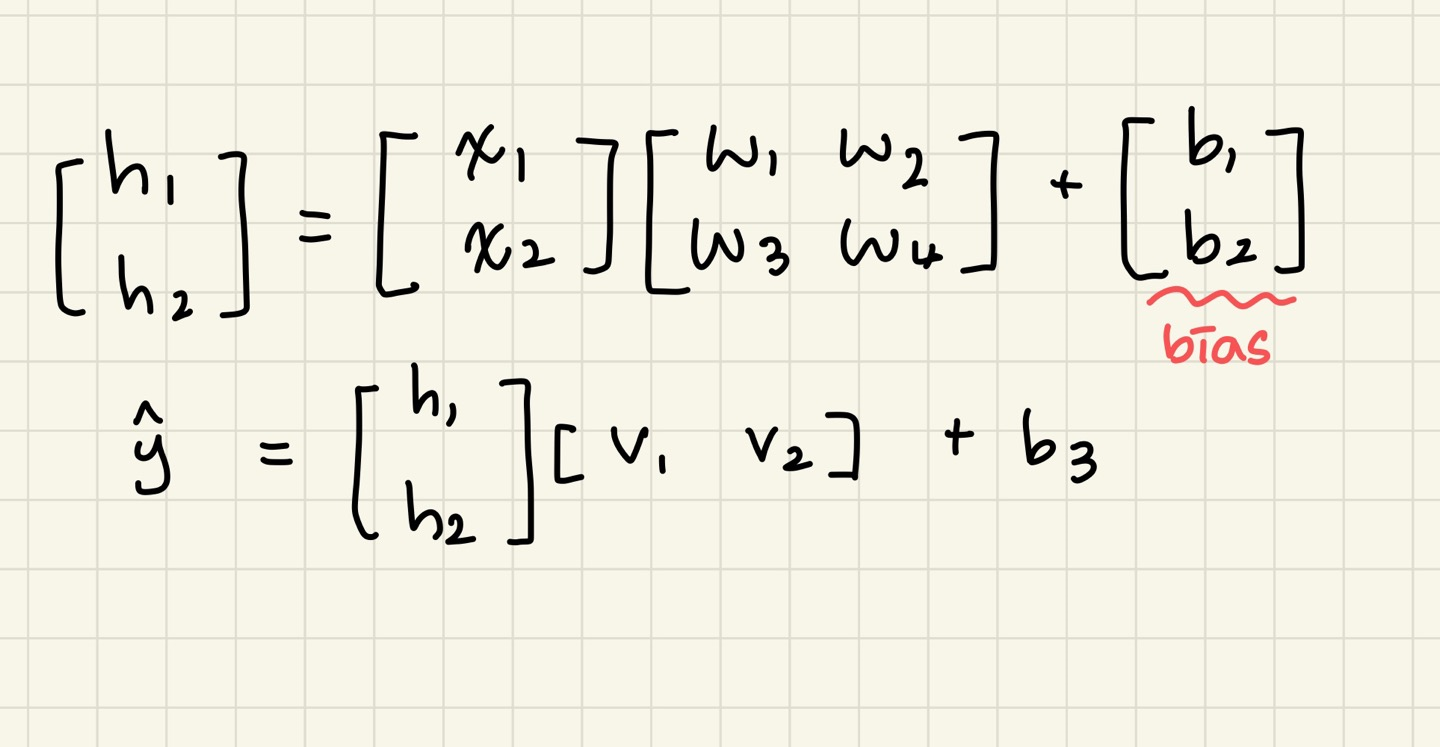 [h₁ h₂] = [x₁ x₂] [w₁ w₂ w₃ w₄] + [b₁ b₂]
bias
ŷ = [h₁ h₂] [v₁ v₂] + b₃